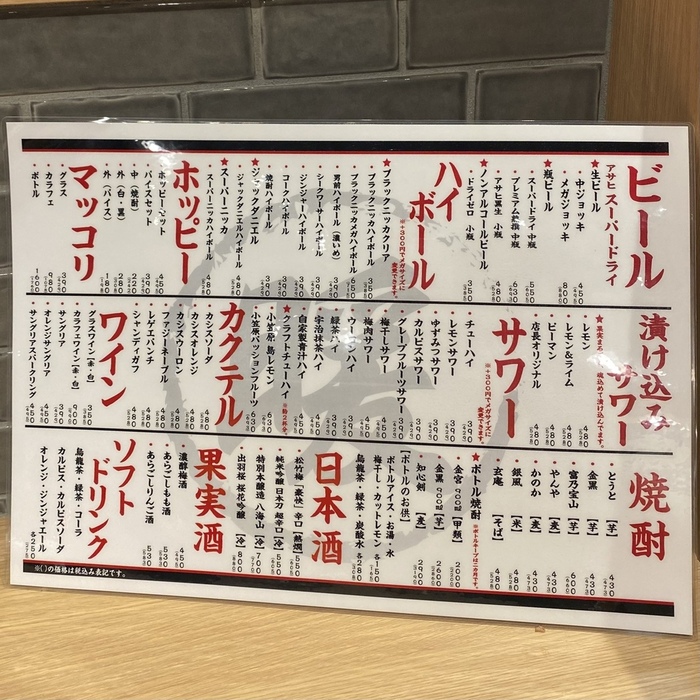 ビール
アサヒ スーパードライ
★生ビール
・中ジョッキ 450
・メガジョッキ 800
★瓶ビール
・スーパードライ 中瓶 550
・プレミアム熟撰 中瓶 630
・アサヒ黒生 小瓶 480
★ノンアルコールビール
・ドライゼロ 小瓶 350
ハイボール
※+300円でメガサイズに変更できます。
★ブラックニッカクリア
・ブラックニッカハイボール 350
・ブラックニッカメガハイボール 650
・男前ハイボール(濃いめ) 390
・シークワーサーハイボール 390
・ジンジャーハイボール 390
・コークハイボール 390
・焼酎ハイボール
★ジャックダニエル
・ジャックダニエルハイボール 480
★スーパーニッカ
・スーパーニッカハイボール 480
ホッピー
・ホッピーセット 450
・バイスセット 390
・中(焼酎) 220
・外(白・黒) 280
・外(バイス) 180
マッコリ
・グラス 390
・カラフェ 980
・ボトル 1600
漬け込みサワー
★果実まるごと漬込めて漬け込んでます。
・レモン 480
・レモン&ライム 480
・ピーマン 480
・店長オリジナル 480
サワー
※+300円でメガサイズに変更できます。
・チューハイ
・レモンサワー 390
・ゆずみつサワー 390
・カルピスサワー 390
・グレープフルーツサワー 390
・梅干しサワー 450
・梅肉サワー
・ウーロンハイ 390
・緑茶ハイ 390
・宇治抹茶ハイ 450
・自家製青汁ハイ 450
★クラフトチューハイ
※酎2杯分。
・小笠原 島レモン 630
・小笠原パッションフルーツ 630
カクテル
・カシスソーダ 480
・カシスオレンジ 480
・カシスウーロン 480
・ファジーネーブル 480
・レゲエパンチ 480
・シャンディガフ 480
ワイン
・グラスワイン[赤・白] 350
・カラフェワイン[赤・白] 980
・サングリア 390
・オレンジサングリア 450
・サングリアスパークリング 450
焼酎
・とうと [芋] 430
・金黒 [芋] 430
・富乃宝山 [芋] 600
・やんや [麦] 430
・かのか [麦] 430
・銀風 [米] 480
・玄庵 [そば] 480
★ボトル焼酎 ※ボトルキープは二カ月です。
・金宮 900㎖ [甲類] 2000
・金黒 900㎖ [芋] 2600
・知心剣 [麦] 2900
[ボトルのお供]
・ボトルアイス・お湯・水
・梅干し・カットレモン 各150
・烏龍茶・緑茶・炭酸水 各280
日本酒
・松竹梅「豪快」辛口 [熱燗] 550
・純米吟醸 日本刀 超辛口 [冷] 550
・特別本醸造 八海山 [冷] 700
・出羽桜 桜花吟醸 [冷] 800
果実酒
・濃醇梅酒 450
・あらごしもも酒 530
・あらごしりんご酒 530
ソフトドリンク
・烏龍茶・緑茶・コーラ
・カルピス・カルピスソーダ
・オレンジ・ジンジャエール 各250
※()の価格は税込み表記です。